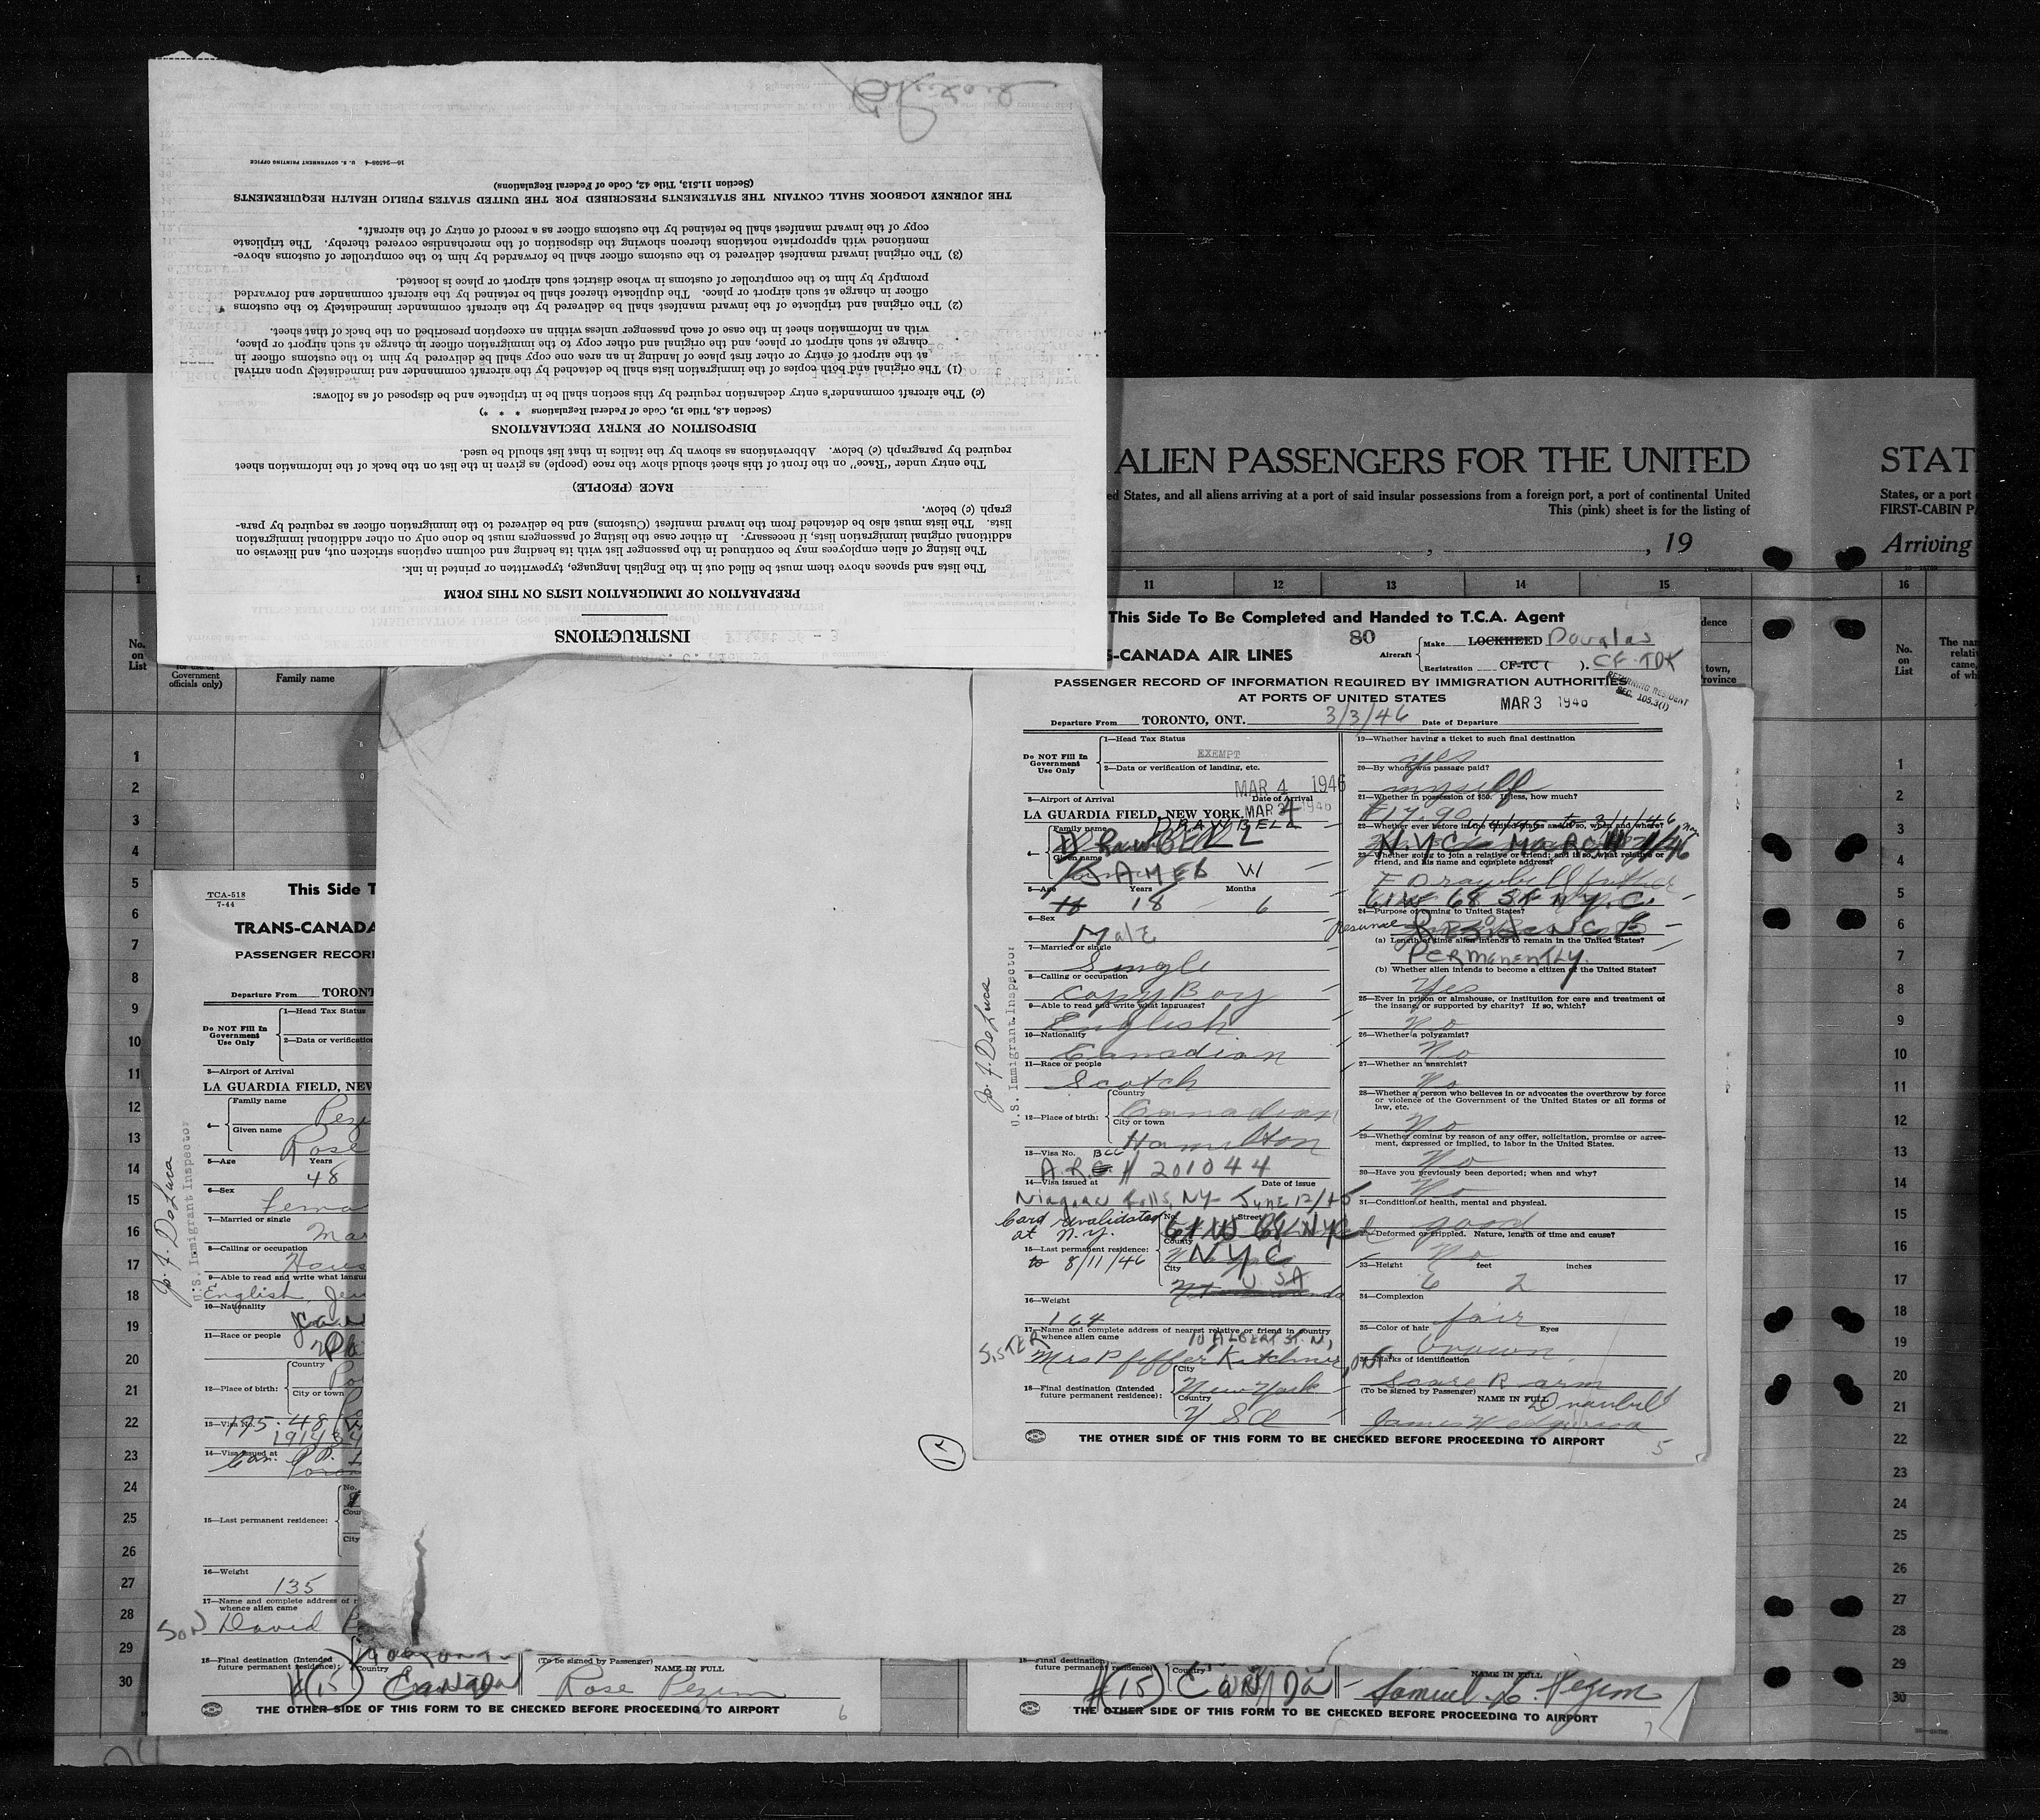 INSTRUCTIONS
PREPARATION OF IMMIGRATION LISTS ON THIS FORM
The lists and spaces above them must be filled out in the English language, typewritten or printed in ink.
The listing of alien employees may be continued in the passenger list with its heading and column captions stricken out, and likewise on
additional original immigration lists, if necessary. In either case the listing of passengers must be done only on other additional immigration
lists. The lists must also be detached from the inward manifest (Customs) and be delivered to the immigration officer as required by para-
graph (c) below.
RACE (PEOPLE)
The entry under "Race" on the front of this sheet should show the race (people) as given in the list on the back of the information sheet
required by paragraph (c) below. Abbreviations as shown by the italics in that list should be used.
DISPOSITION OF ENTRY DECLARATIONS
(Section 4.8, Title 19, Code of Federal Regulations * * *)
(c) The aircraft commander's entry declaration required by this section shall be in triplicate and be disposed of as follows:
(1) The original and both copies of the immigration lists shall be detached by the aircraft commander and immediately upon arrival
at the airport of entry or other first place of landing in an area one copy shall be delivered by him to the customs officer in
charge at such airport or place, and the original and other copy to the immigration officer in charge at such airport or place,
with an information sheet in the case of each passenger unless within an exception prescribed on the back of that sheet.
(2) The original and triplicate of the inward manifest shall be delivered by the aircraft commander immediately to the customs
officer in charge at such airport or place. The duplicate thereof shall be retained by the aircraft commander and forwarded
promptly by him to the comptroller of customs in whose district such airport or place is located.
(3) The original inward manifest delivered to the customs officer shall be forwarded by him to the comptroller of customs above-
mentioned with appropriate notations thereon showing the disposition of the merchandise covered thereby. The triplicate
copy of the inward manifest shall be retained by the customs officer as a record of entry of the aircraft.
THE JOURNEY LOGBOOK SHALL CONTAIN THE STATEMENTS PRESCRIBED FOR THE UNITED STATES PUBLIC HEALTH REQUIREMENTS
(Section 11.513, Title 42, Code of Federal Regulations)
16—24598-4 U. S. GOVERNMENT PRINTING OFFICE
ALIEN PASSENGERS FOR THE UNITED
ed States, and all aliens arriving at a port of said insular possessions from a foreign port, a port of continental United
This (pink) sheet is for the listing of
, 19
11 12 13 14 15
STAT
States, or a port
FIRST-CABIN P
Arriving
16
No.
on
List
The nam
relati
came,
of wh
1
2
3
4
5
6
7
8
9
10
11
12
13
14
15
16
17
18
19
20
21
22
23
24
25
26
27
28
29
30
1
No.
on
List
Government
officials only)
Family name
1
2
3
4
5
6
7
8
9
10
11
12
13
14
15
16
17
18
19
20
21
22
23
24
25
26
27
28
29
30
dence
town,
Province
This Side To Be Completed and Handed to T.C.A. Agent
80
S-CANADA AIR LINES
Aircraft
Make LOCKHEED Douglas
Registration CF-TC ( ). CF-TDK
PASSENGER RECORD OF INFORMATION REQUIRED BY IMMIGRATION AUTHORITIES
AT PORTS OF UNITED STATES
RETURNING RESIDENT
SEC. 105.3(1)
MAR 3 1946
Departure From TORONTO, ONT. 3/3/46 Date of Departure
Do NOT Fill In
Government
Use Only
1—Head Tax Status
EXEMPT
2—Data or verification of landing, etc.
MAR 4 1946
3—Airport of Arrival Date of Arrival
LA GUARDIA FIELD, NEW YORK MAR 3 4 1946
DRAWBELL
4—
Family name
DRAWBELL
Given name
JAMES W
5—Age Years Months
18 6
6—Sex
Male
7—Married or single
Single
8—Calling or occupation
Copy Boy
9—Able to read and write what languages?
English
10—Nationality
Canadian
11—Race or people
Scotch
12—Place of birth:
Country
Canadian
City or town
Hamilton
13—Visa No. BCC
A.R.C # 201044
14—Visa issued at Date of issue
Niagara Falls, NY - June 12/45
Card revalidated
at N.Y.
to 8/11/46
15—Last permanent residence:
No. Street
61 W 68 NYC
County
NYC
City
USA
16—Weight
164
17—Name and complete address of nearest relative or friend in country
whence alien came
10 ALBERT ST. N,
SISTER
Mrs Pfeffer Kitchner, ONT
18—Final destination (Intended
future permanent residence):
City
New York
Country
USA
19—Whether having a ticket to such final destination
yes
20—By whom was passage paid?
myself
21—Whether in possession of $50. If less, how much?
$17.90
22—Whether ever before in the United States and if so, when and where?
N.Y.C. MARCH 1/46
23—Whether going to join a relative or friend; and if so, what relative or
friend, and his name and complete address?
F Drawbell father
61 W 68 St N.Y.C.
24—Purpose of coming to United States?
RESIDENCE
(a) Length of time alien intends to remain in the United States?
PERMENENTLY.
(b) Whether alien intends to become a citizen of the United States?
Yes
25—Ever in prison or almshouse, or institution for care and treatment of
the insane, or supported by charity? If so, which?
No
26—Whether a polygamist?
No
27—Whether an anarchist?
No
28—Whether a person who believes in or advocates the overthrow by force
or violence of the Government of the United States or all forms of
law, etc.
No
29—Whether coming by reason of any offer, solicitation, promise or agree-
ment, expressed or implied, to labor in the United States.
No
30—Have you previously been deported; when and why?
No
31—Condition of health, mental and physical.
good
32—Deformed or crippled. Nature, length of time and cause?
No
33—Height feet inches
6 2
34—Complexion
fair
35—Color of hair Eyes
brown.
36—Marks of identification
Scare R arm
(To be signed by Passenger) NAME IN FULL
Drawbell
James
THE OTHER SIDE OF THIS FORM TO BE CHECKED BEFORE PROCEEDING TO AIRPORT
5
Jo. J. DeLuca
U.S. Immigrant Inspector
TCA-518
7-44
This Side T
TRANS-CANADA
PASSENGER RECOR
Departure From TORONT
Do NOT Fill In
Government
Use Only
1—Head Tax Status
2—Data or verificatio
3—Airport of Arrival
LA GUARDIA FIELD, NEW
4—
Family name
Given name
Rose
5—Age Years
48
6—Sex
Fema
7—Married or single
Mar
8—Calling or occupation
Hous
9—Able to read and write what langu
English, Jew
10—Nationality
11—Race or people
12—Place of birth:
Country
Po
City or town
13—Visa No.
14—Visa issued at
15—Last permanent residence:
No.
Coun
City
16—Weight
135
17—Name and complete address of n
whence alien came
SON David
18—Final destination (Intended
future permanent residence):
Country
#(15) Canada
(To be signed by Passenger) NAME IN FULL
Rose Pezim
THE OTHER SIDE OF THIS FORM TO BE CHECKED BEFORE PROCEEDING TO AIRPORT
6
Jo. J. DeLuca
U.S. Immigrant Inspector
18—Final destination
future permanent residence)
Country
#(15) CANADA
NAME IN FULL
Samuel Pezim
THE OTHER SIDE OF THIS FORM TO BE CHECKED BEFORE PROCEEDING TO AIRPORT
7